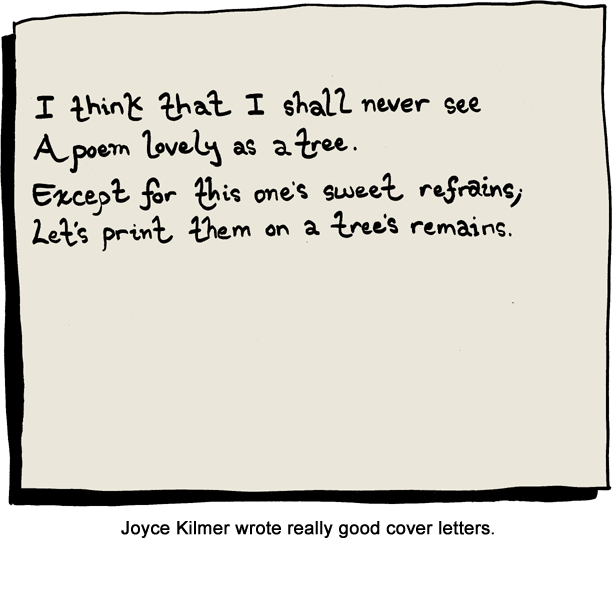 I think that I shall never see
A poem lovely as a tree.
Except for this one's sweet refrains;
Let's print them on a tree's remains.
Joyce Kilmer wrote really good cover letters.